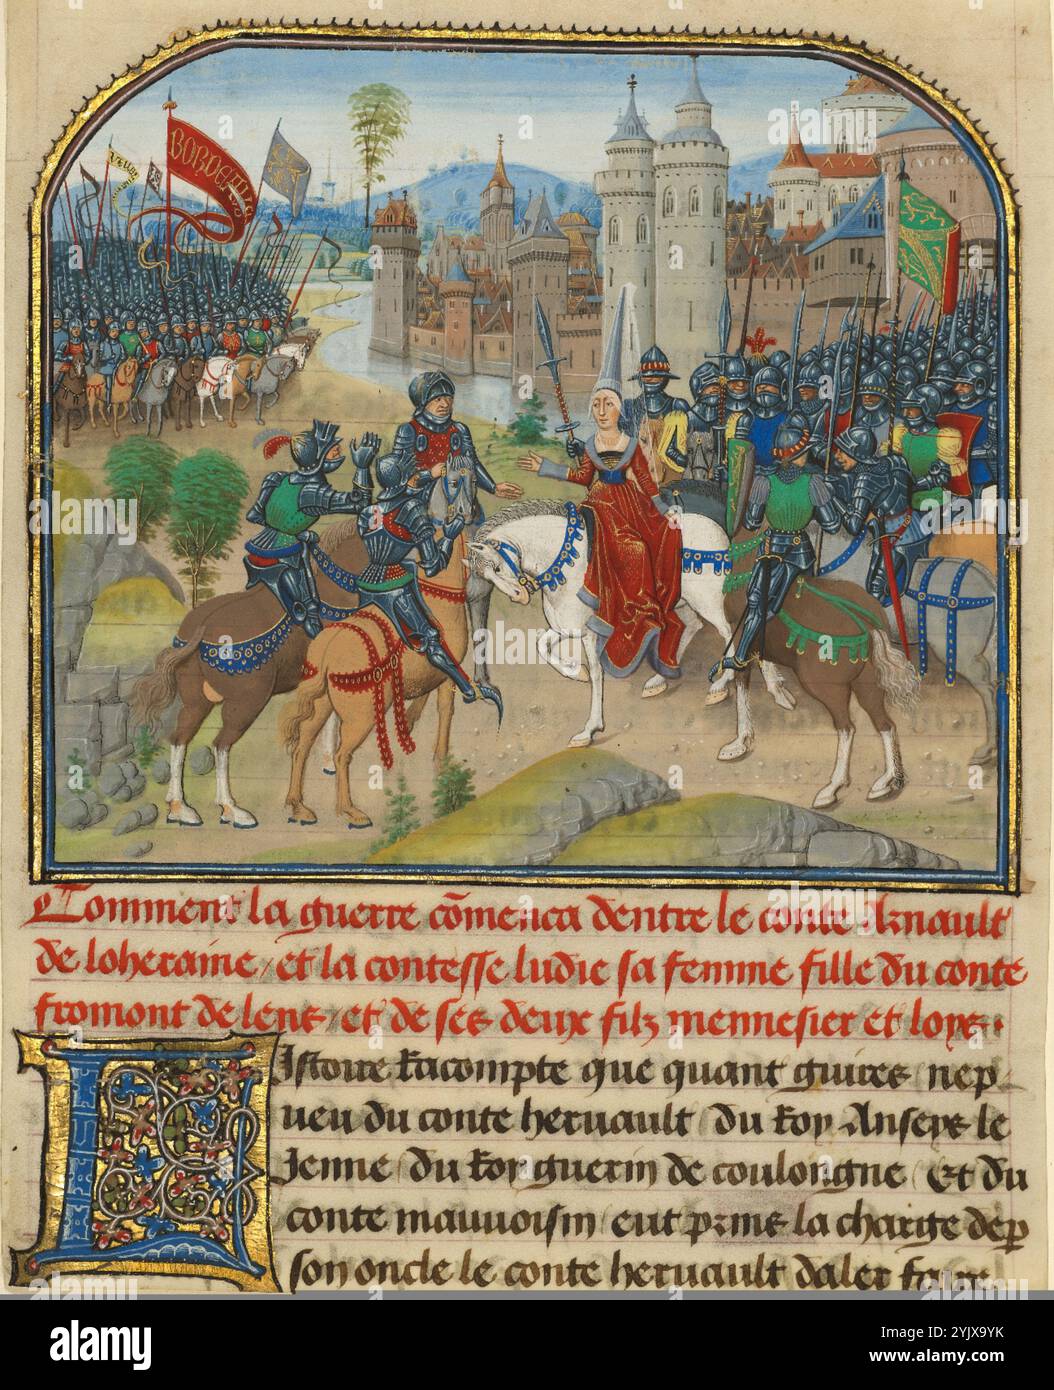 BORDEAULX
Comment la guerre cõmenca dentre le conte Arnault
de loheraine / et la contesse ludie sa femme fille du conte
fromont de lens / et de ses deux filz mennesier et loys ·:
Istoire racompte que quant guires nep
ueu du conte heruault / du roy Anseys le
Jenne / du roy guerin de coulongne / Et du
conte mauuoisin / eut prins la charge de p
son oncle le conte heruault daler faire
alamy
Image ID: 2YJX9YK
www.alamy.com